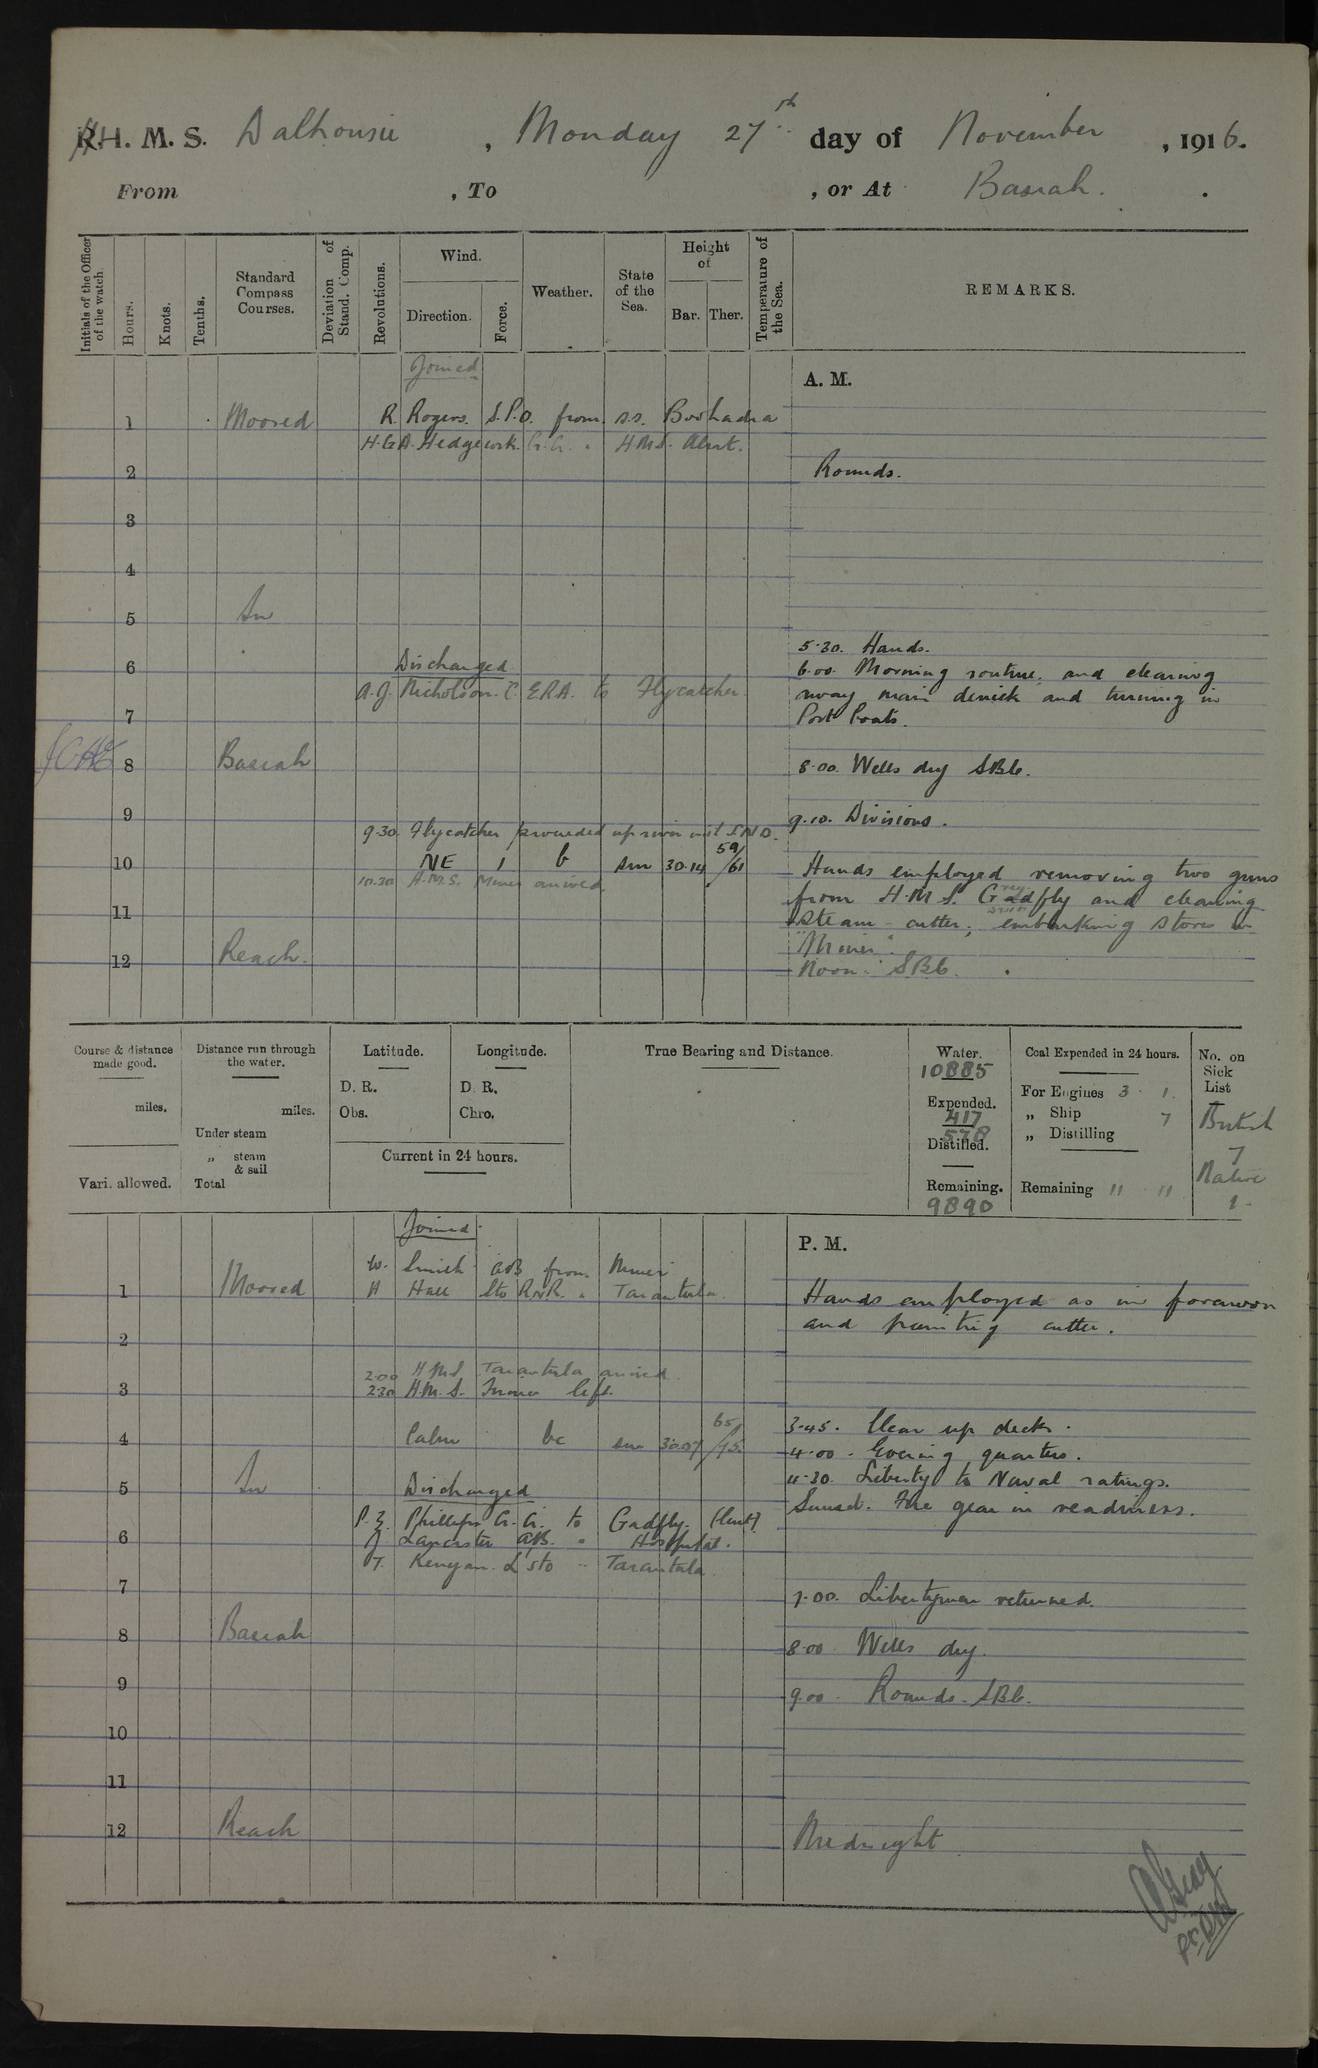 R.H. M. S. Dalhousie, Monday 27th day of November, 1916.
From , To , or At Basrah.
Initials of the Officer of the watch.
Hours.
Knots.
Tenths.
Standard Compass Courses.
Deviation of Stand. Comp.
Revolutions.
Wind.
Direction.
Force.
Weather.
State of the Sea.
Height of
Bar. Ther.
Temperature of the Sea.
REMARKS.
Joined
A. M.
1 Moored R. Rogers. S.P.O. from s.s. Boohadra
H.G.A. Hedgecock. G.G. " H.M.S. Alert.
2 Rounds.
3
4
5 In
5.30. Hands.
6 Discharged
6.00. Morning routine, and clearing
A.J. Nicholson. C. ERA. to Flycatcher
away main derrick and turning in
7 Port boats.
8 Basrah 8.00. Wells dry SBb.
9 9.10. Divisions.
9.30. Flycatcher proceeded up river with SNO.
10 NE 1 b sm 30.14 59/61
Hands employed removing two guns
10.30 H.M.S. Miner arrived
from H.M.S. Gadfly and cleaning
11 steam-cutter; embarking stores in
"Miner".
12 Reach. Noon. SBb.
Course & distance made good.
miles.
Vari. allowed.
Distance run through the water.
miles.
Under steam
„ steam & sail
Total
Latitude.
D. R.
Obs.
Longitude.
D. R.
Chro.
Current in 24 hours.
True Bearing and Distance.
Water.
10885
Expended.
417
578
Distilled.
Remaining.
9890
Coal Expended in 24 hours.
For Engines 3 . 1.
„ Ship 7
„ Distilling
Remaining 11 . 11
No. on Sick List
British
7
Native
1.
Joined.
P. M.
W. Smith AB from Miner
1 Moored H Hall Sto RNR. " Tarantula.
Hands employed as in forenoon
and painting cutter.
2
2.00 H.M.S. Tarantula arrived.
3 2.30 H.M.S. left.
3.45. Clear up decks.
4 Calm bc sm 30.07 65/75.
4.00. Evening quarters.
4.30. Liberty to Naval ratings.
5 In Discharged
Sunset. Fire gear in readiness.
P.J. Phillips G.G. to Gadfly. (lent)
6 J Lancaster AB. " Hospital.
T. Kenyon. L'sto " Tarantula.
7 7.00. Libertymen returned.
8 Basrah 8.00 Wells dry.
9 9.00. Rounds. SBb.
10
11
12 Reach Midnight